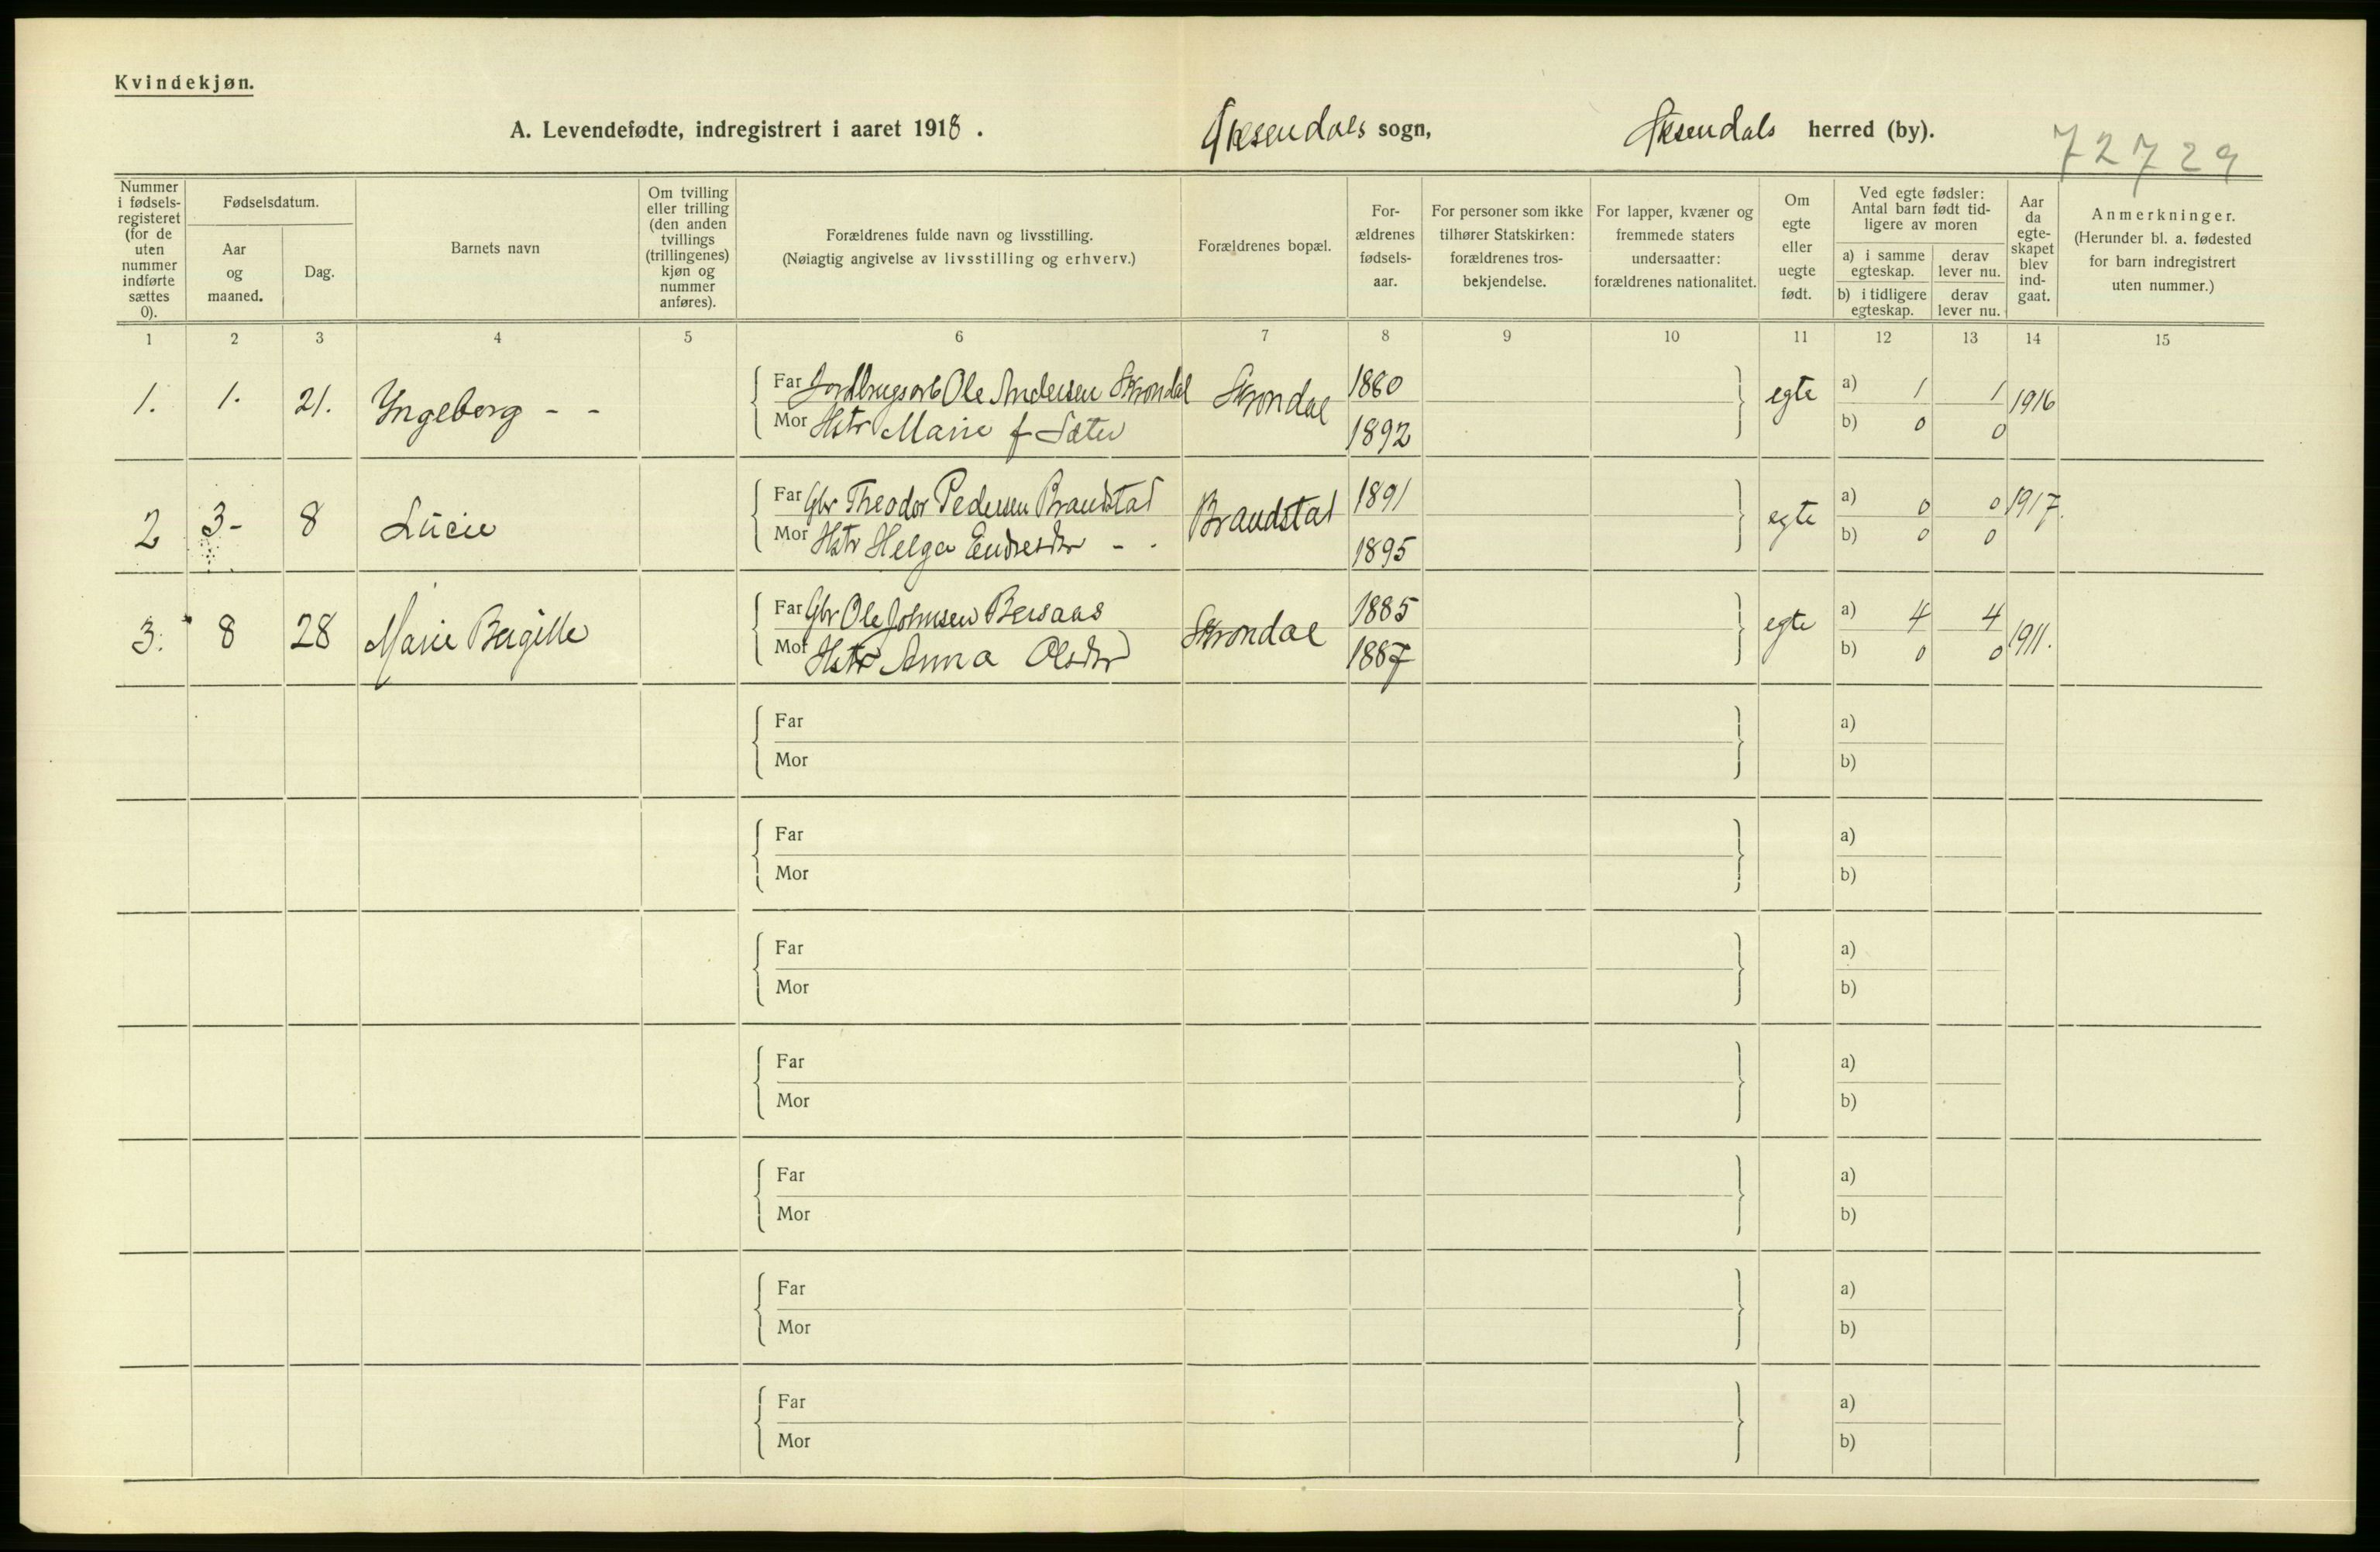 Kvindekjøn.
A. Levendefødte, indregistrert i aaret 1918. Øksendals sogn, Øksendals herred (by).
72729
Nummer i fødselsregisteret (for de uten nummer indførte sættes 0).
Fødselsdatum.
Aar og maaned.
Dag.
Barnets navn
Om tvilling eller trilling (den anden tvillings (trillingenes) kjøn og nummer anføres).
Forældrenes fulde navn og livsstilling.
(Nøiagtig angivelse av livsstilling og erhverv.)
Forældrenes bopæl.
Forældrenes fødselsaar.
For personer som ikke tilhører Statskirken: forældrenes trosbekjendelse.
For lapper, kvæner og fremmede staters undersaatter: forældrenes nationalitet.
Om egte eller uegte født.
Ved egte fødsler: Antal barn født tidligere av moren
a) i samme egteskap.
derav lever nu.
b) i tidligere egteskap.
derav lever nu.
Aar da egteskapet blev indgaat.
Anmerkninger.
(Herunder bl. a. fødested for barn indregistrert uten nummer.)
1 2 3 4 5 6 7 8 9 10 11 12 13 14 15
1. 1. 21. Yngeborg - - Far Jordbrugsarb Ole Andersen Skrondal Skrondal 1880 egte a) 1 1 1916
Mor Hstr Marie f Sæter 1892 b) 0 0
2 3- 8 Lucie Far Gbr Theodor Pedersen Brandstad Brandstad 1891 egte a) 0 0 1917.
Mor Hstr Helga Endresdtr - - 1895 b) 0 0
3. 8 28 Marie Bergitte Far Gbr Ole Johnsen Bersaas Skrondal 1885 egte a) 4 4 1911.
Mor Hstr Anna Olsdtr 1887 b) 0 0
Far a)
Mor b)
Far a)
Mor b)
Far a)
Mor b)
Far a)
Mor b)
Far a)
Mor b)
Far a)
Mor b)
Far a)
Mor b)